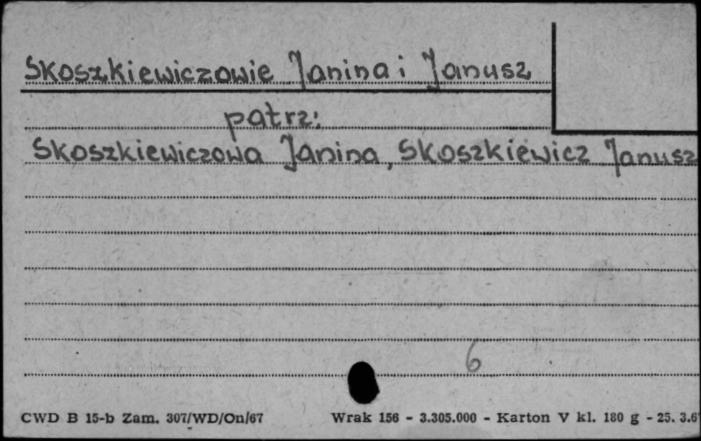 Skoszkiewiczowie Janina i Janusz
patrz:
Skoszkiewiczowa Janina, Skoszkiewicz Janusz
6
CWD B 15-b Zam. 307/WD/On/67 Wrak 156 - 3.305.000 - Karton V kl. 180 g - 25. 3.6